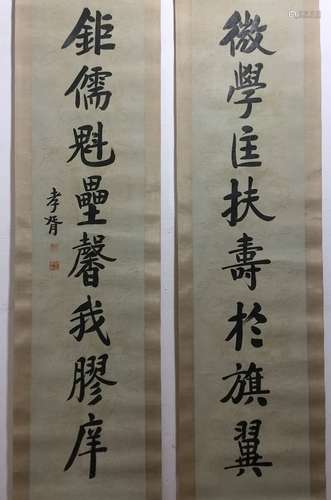 微學匡扶壽於旗翼
鉅儒魁壘馨我膠庠
孝胥